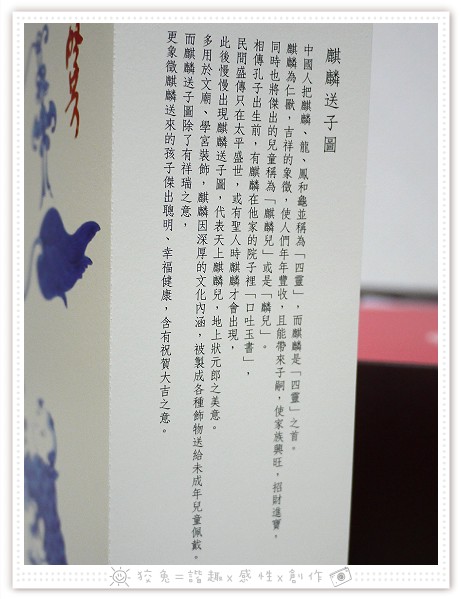 麒麟送子圖
中國人把麒麟、龍、鳳和龜並稱為「四靈」，而麒麟是「四靈」之首。
麒麟為仁獸，吉祥的象徵，使人們年年豐收，且能帶來子嗣，使家族興旺，招財進寶，
同時也將傑出的兒童稱為「麒麟兒」或是「麟兒」。
相傳孔子出生前，有麒麟在他家的院子裡「口吐玉書」，
民間盛傳只在太平盛世，或有聖人時麒麟才會出現，
此後慢慢出現麒麟送子圖，代表天上麒麟兒，地上狀元郎之美意。
多用於文廟、學宮裝飾，麒麟因深厚的文化內涵，被製成各種飾物送給未成年兒童佩戴。
而麒麟送子圖除了有祥瑞之意，
更象徵麒麟送來的孩子傑出聰明、幸福健康，含有祝賀大吉之意。
狡兔=諧趣x感性x創作